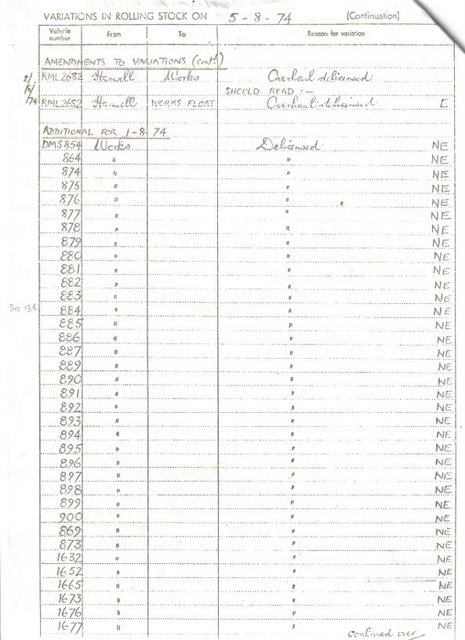 VARIATIONS IN ROLLING STOCK ON 5 - 8 - 74 (Continuation)
Vehicle number From To Reason for variation
AMENDMENTS TO VARIATIONS (cont)
RML2682 Hanwell Works Overhaul delicensed
2/8/74 SHOULD READ :-
RML2682 Hanwell WORKS FLOAT Overhaul-delicensed E
ADDITIONAL FOR 1-8-74
DMS854 Works Delicensed NE
864 " " NE
874 " " NE
875 " " NE
876 " " NE
877 " " NE
878 " " NE
879 " " NE
880 " " NE
881 " " NE
882 " " NE
883 " " NE
884 " " NE
885 " " NE
886 " " NE
887 " " NE
889 " " NE
890 " " NE
891 " " NE
892 " " NE
893 " " NE
894 " " NE
895 " " NE
896 " " NE
897 " " NE
898 " " NE
899 " " NE
900 " " NE
869 " " NE
873 " " NE
1632 " " NE
1652 " " NE
1665 " " NE
1673 " " NE
1676 " " NE
1677 " " NE
continued over